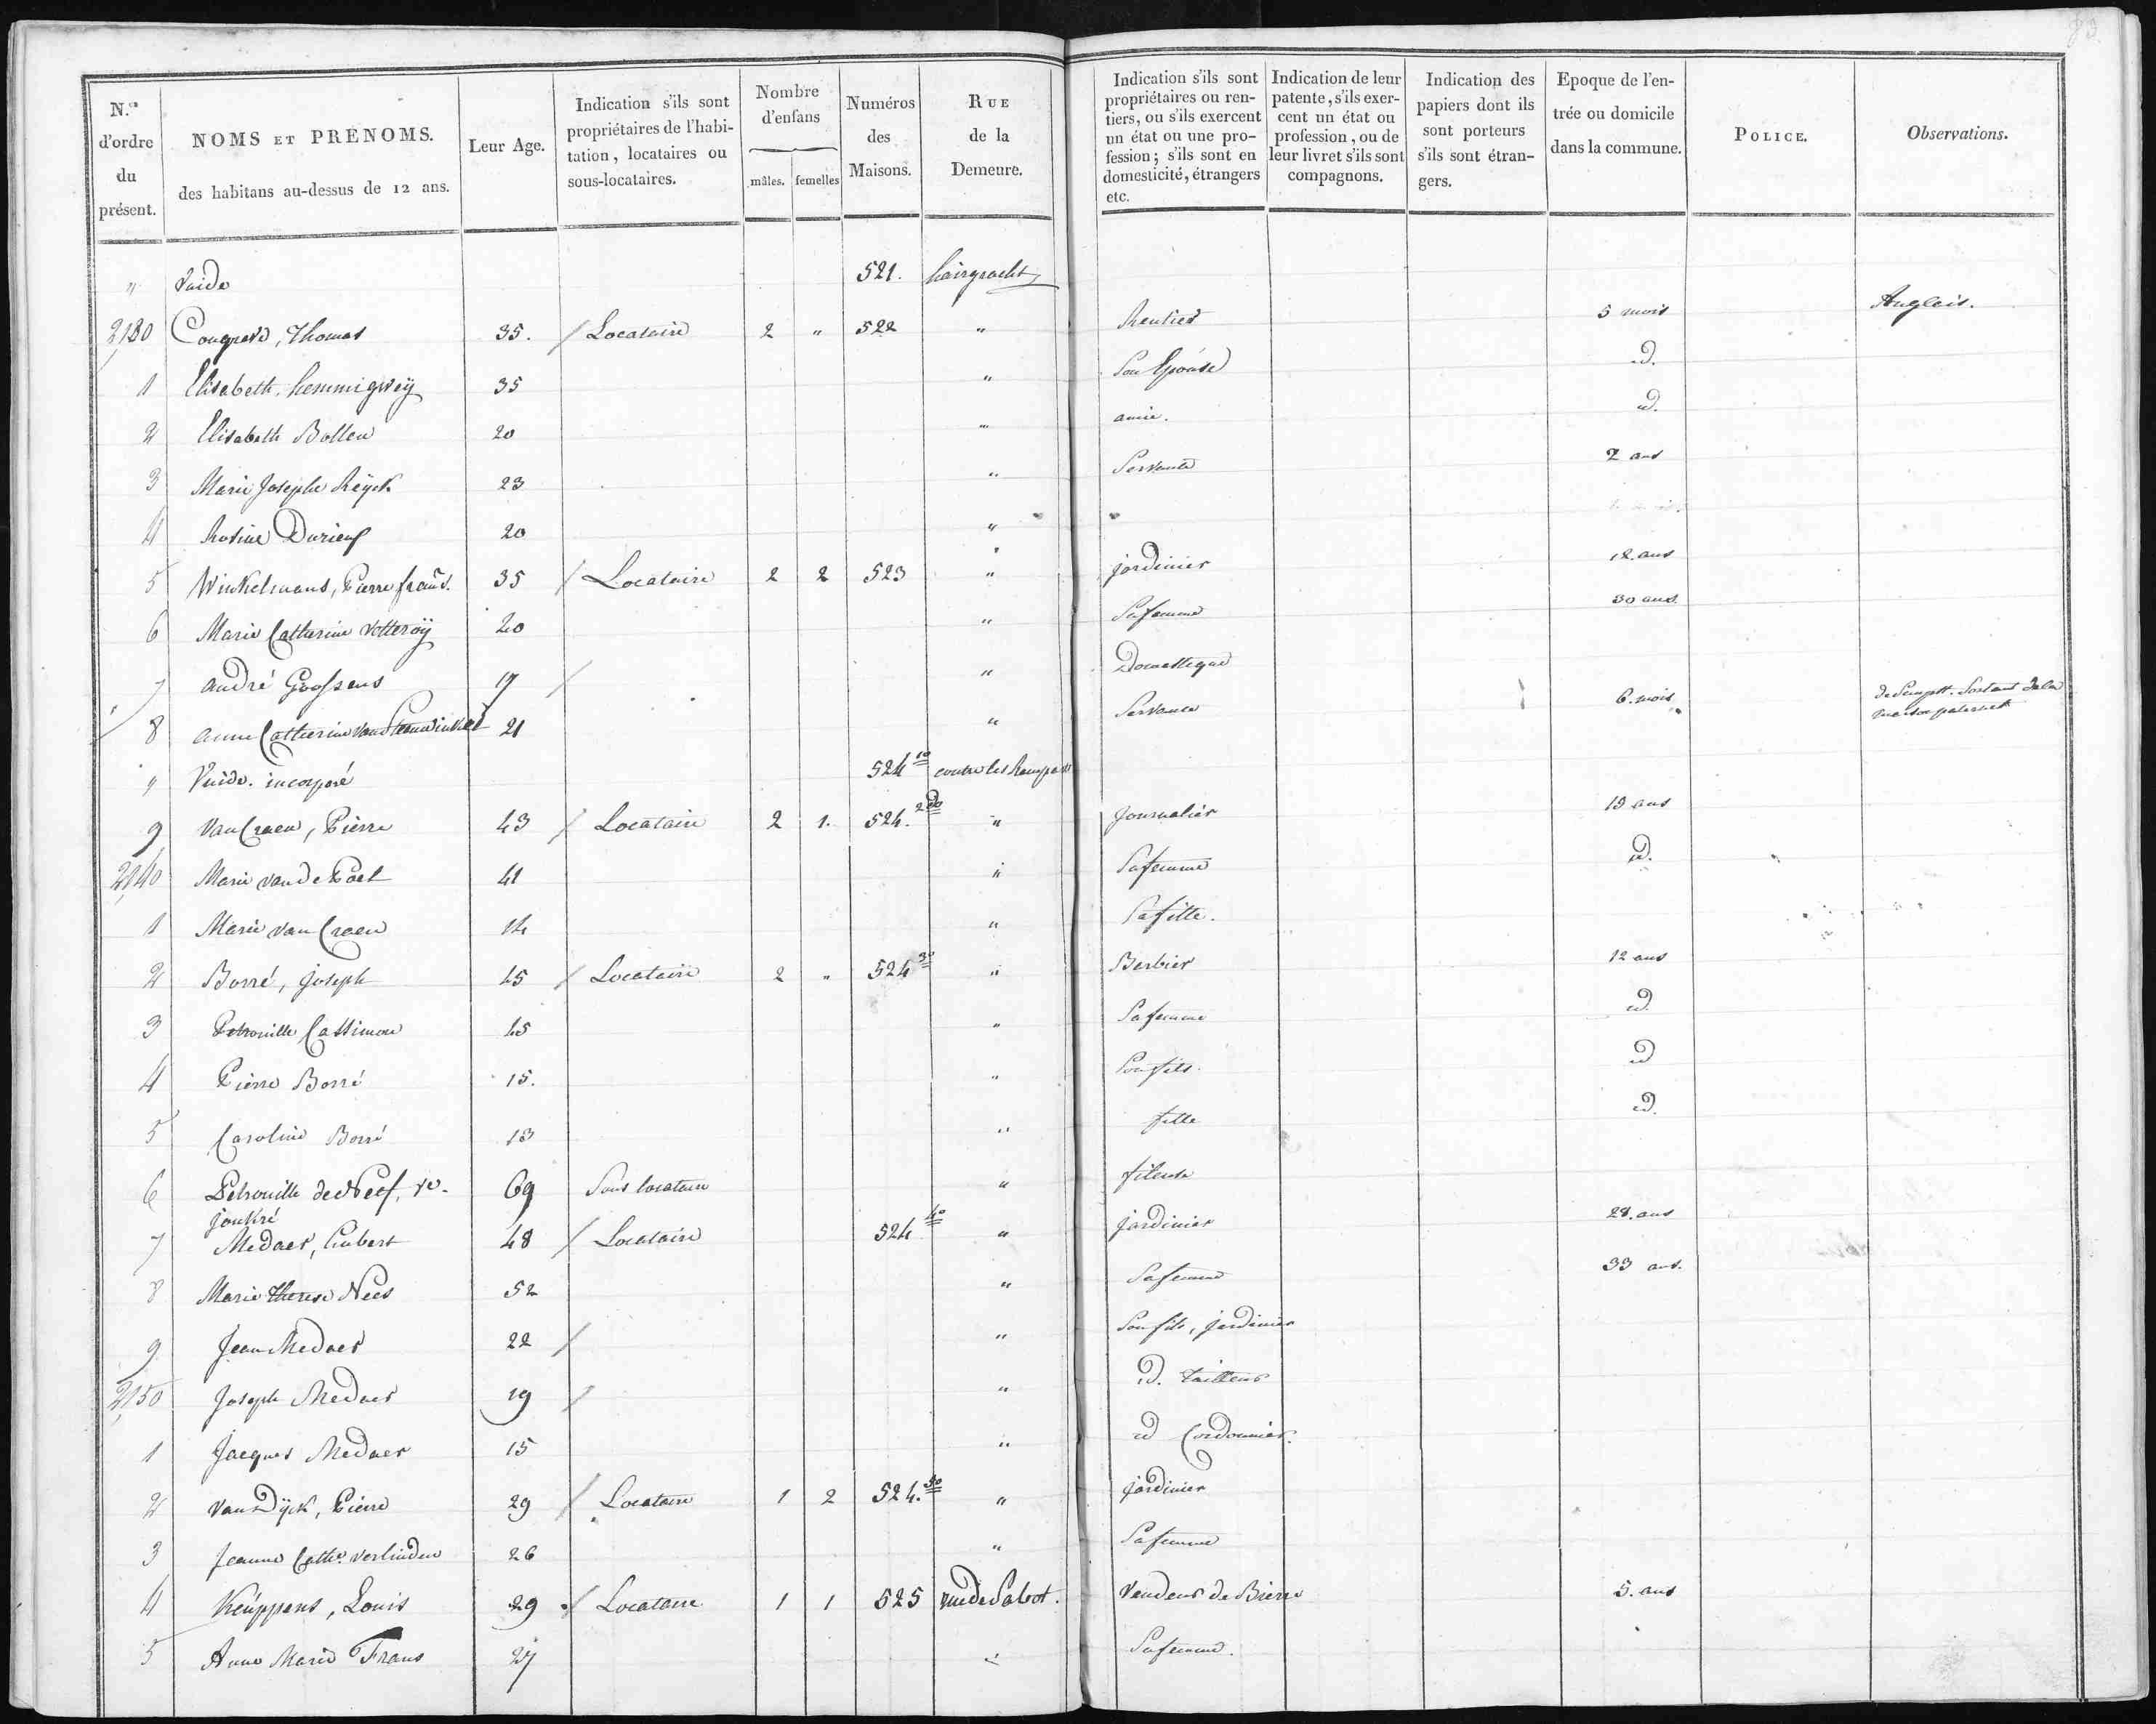 N.os d'ordre du présent. | NOMS ET PRÉNOMS. des habitans au-dessus de 12 ans. | Leur Age. | Indication s'ils sont propriétaires de l'habitation, locataires ou sous-locataires. | Nombre d'enfans mâles. femelles | Numéros des Maisons. | RUE de la Demeure. | Indication s'ils sont propriétaires ou rentiers, ou s'ils exercent un état ou une profession; s'ils sont en domesticité, étrangers etc. | Indication de leur patente, s'ils exercent un état ou profession, ou de leur livret s'ils sont compagnons. | Indication des papiers dont ils sont porteurs s'ils sont étrangers. | Epoque de l'entrée ou domicile dans la commune. | POLICE. | Observations.
" Vuide 521. hairgracht
2130 Congreve, Thomas 35. / Locataire 2 " 522 " Rentier 5 mois Anglais.
1 Elisabeth 35 " Son Epouse id.
2 Elisabeth Bollen 20 " amie. id.
3 Marie Josephe Reyck 23 " Servante 2 ans
4 Rosine Durieux 20 " "
5 Winkelmans, Pierre frans. 35 / Locataire 2 2 523 " jardinier 12 ans
6 Marie Catherine 20 " Sa femme 30 ans.
7 André Goossens 19 / " Domestique
8 Anne Catherine 21 " Servante 6 mois de Sortant de la maison paternel
" Vuide. incorporé 524 1o contre les Rempars
9 Van Craen, Pierre 43 / Locataire 2 1. 524. 2do " Journalier 19 ans
2140 Marie van de Poel 41 " Sa femme id.
1 Marie van Craen 14 " Sa fille.
2 Borré, joseph 45 / Locataire 2 " 524 3o " Barbier 12 ans
3 Petronille Cassimon 45 " Sa femme id.
4 Pierre Borré 15. " Son fils. id
5 Caroline Borré 13 " fille id.
6 Petronille de Neef, ve. 69 Sous locataire " fileuse
jonkré
7 Medaer, hubert 48 / Locataire 524 4o " jardinier 28. ans
8 Marie Therese Nees 52 " Sa femme 33 ans.
9 Jean Medaer 22 / " Son fils, jardinier
2150 Joseph Medaer 19 / " id. Tailleur
1 Jacques Medaer 15 " id Cordonnier.
2 van Dijck, Pierre 29 / Locataire 1 2 524. 5o " jardinier
3 Jeanne Cathe. verlinden 26 " Sa femme
4 Keüppens, Louis 29 / Locataire 1 1 525 rue de Sabot. Vendeur de Bierre 5. ans
5 Anne Marie Frans 27 " Sa femme.